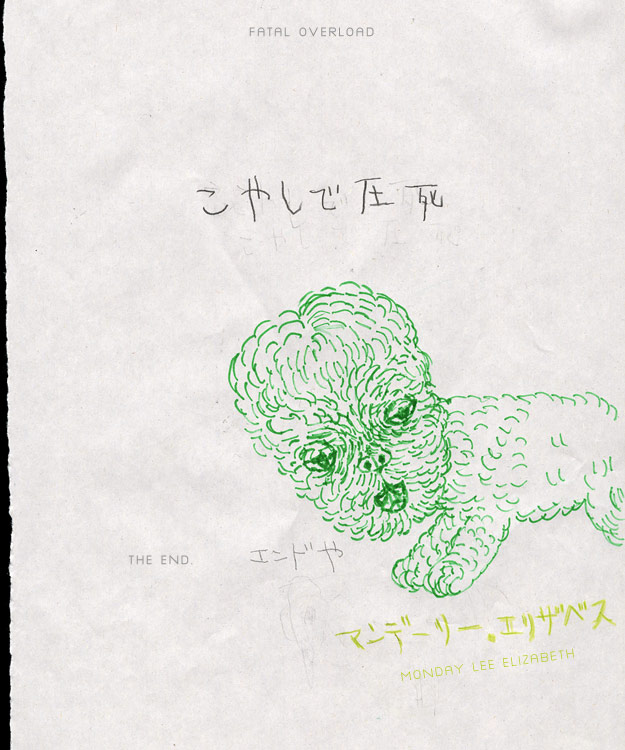 FATAL OVERLOAD
こやしで圧死
THE END.
エンドや
マンデーリー。エリザベス
MONDAY LEE ELIZABETH